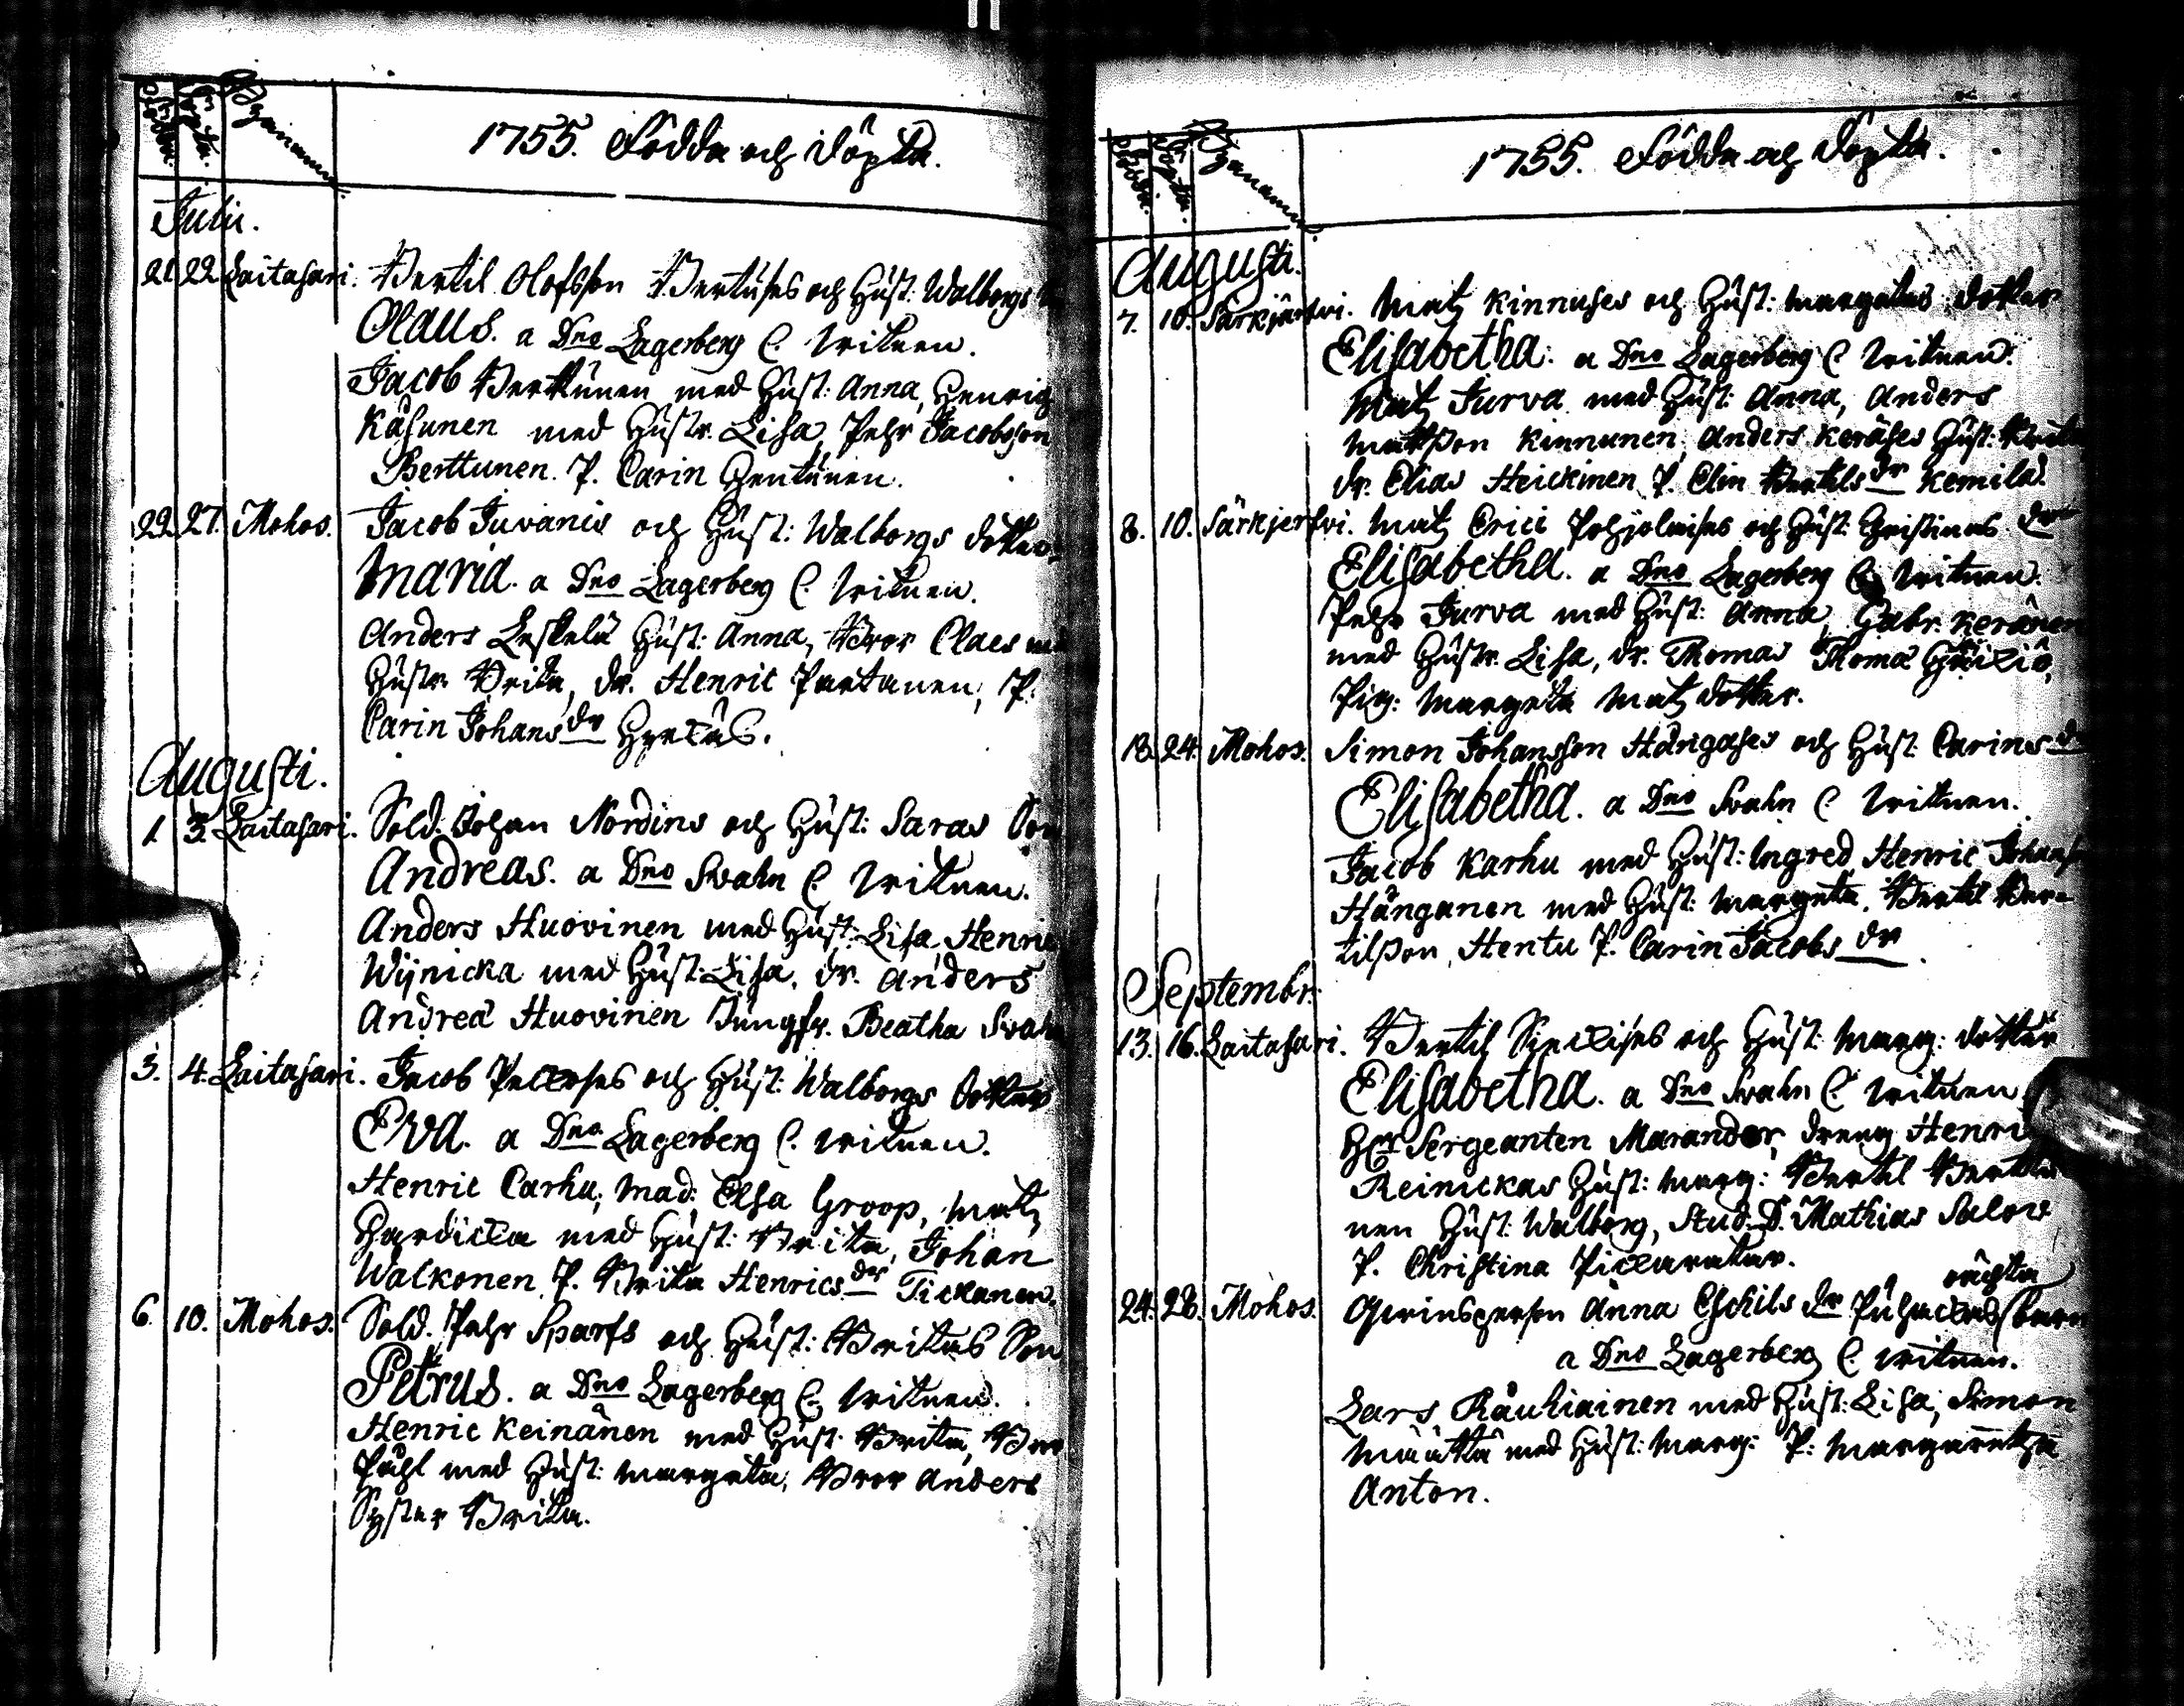 Födde. Döpta. Bynamn.
1755. Födda och Döpta.
Julii.
21. 22. Laitasari. Bertil Olofsson Bertuses och Hust. Walborgs
Olaus. a Dno Lagerberg C. Witnen.
Jacob Berttunen med Hust: Anna, Henrig
Käsunen med Hustr. Lisa, Pehr Jacobsson
Berttunen. P. Carin Hentunen.
22. 27. Mohos. Jacob Juvanis och Hust: Walborgs dotter
Maria. a Dno Lagerberg C. Witnen.
Anders Leskelä Hust: Anna, Bror Claes
Hustr Brita, dr. Henric Partanen, P.
Carin Johans dr
Augusti.
1. 3. Laitasari. Sold. Johan Nordins och Hust: Saras Son
Andreas. a Dno Svahn C. Witnen.
Anders Huovinen med Hust: Lisa, Henric
Wijnicka med Hust: Lisa, dr. Anders
Andreæ Huovinen Jungfr. Beatha Svahn
3. 4. Laitasari. Jacob och Hust: Walborgs dotter
Eva. a Dno Lagerberg C. Witnen.
Henric Carhu, Mad: Elsa Groop, Matz
med Hust: Brita, Johan
Walkonen, P. Brita Henrics dr Tickanen.
6. 10. Mohos. Sold. Pehr Sparfs och Hust: Britas Son
Petrus. a Dno Lagerberg C. Witnen.
Henric Keinänen med Hust: Brita, Bror
Påhl med Hust: Margeta, Bror Anders
Syster Brita.
Födde. Döpta. Bynamn.
1755. Födda och Döpta.
Augusti.
7. 10. Särkjärfvi. Matz Kinnuses och Hust: Margetas dotter
Elisabetha. a Dno Lagerberg C. Witnen.
Matz Jurva med Hust: Anna, Anders
Matsson Kinnunen, Anders Keräses Hust:
dr. Elias Heickinen, P. Elin Bertils dr Kemilä.
8. 10. Särkjerfvi. Matz Erici Pohjolaises och Hust Christinas dr
Elisabetha. a Dno Lagerberg C. Witnen.
Pehr Jurva med Hust: Anna, Gabr. Keränen
med Hustr. Lisa, dr. Thomas Thomæ
Pig: Margeta Matz dotter.
18. 24. Mohos. Simon Johansson Hängases och Hust: Carins dr
Elisabetha. a Dno Svahn C. Witnen.
Jacob Karhu med Hust: Ingred, Henric Johans
Hänganen med Hust: Margeta, Bertil Ber=
tilsson, Hentu P. Carin Jacobs dr
Septembr:
13. 16. Laitasari. Bertil och Hust: Marg: dotter
Elisabetha. a Dno Svahn C. Witnen
Hr Sergeanten Marander, dreng Henric
Reinickas Hust: Marg: Bertil Berttu
nen Hust: Walborg, Stud: D. Mathias Salov,
P. Christina
24. 28. Mohos. Qwinsperson Anna Eschils dr oächta barn
a Dno Lagerberg C. Witnen.
Lars Räuhiainen med Hust: Lisa, Simon
Määttä med Hust: Marg: P: Margaretha
Anton.